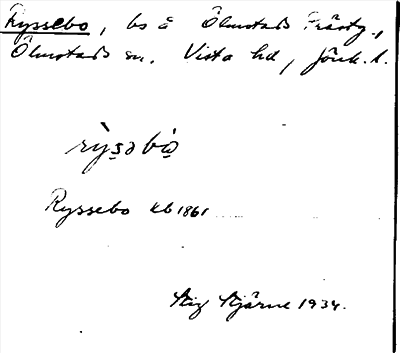 Ryssebo, bs å Ölmstads Prästg.,
Ölmstads sn. Vista hd, Jönk. l.
rỳs̱əbò̱
Ryssebo kb 1861
Stig Stjärne 1934.